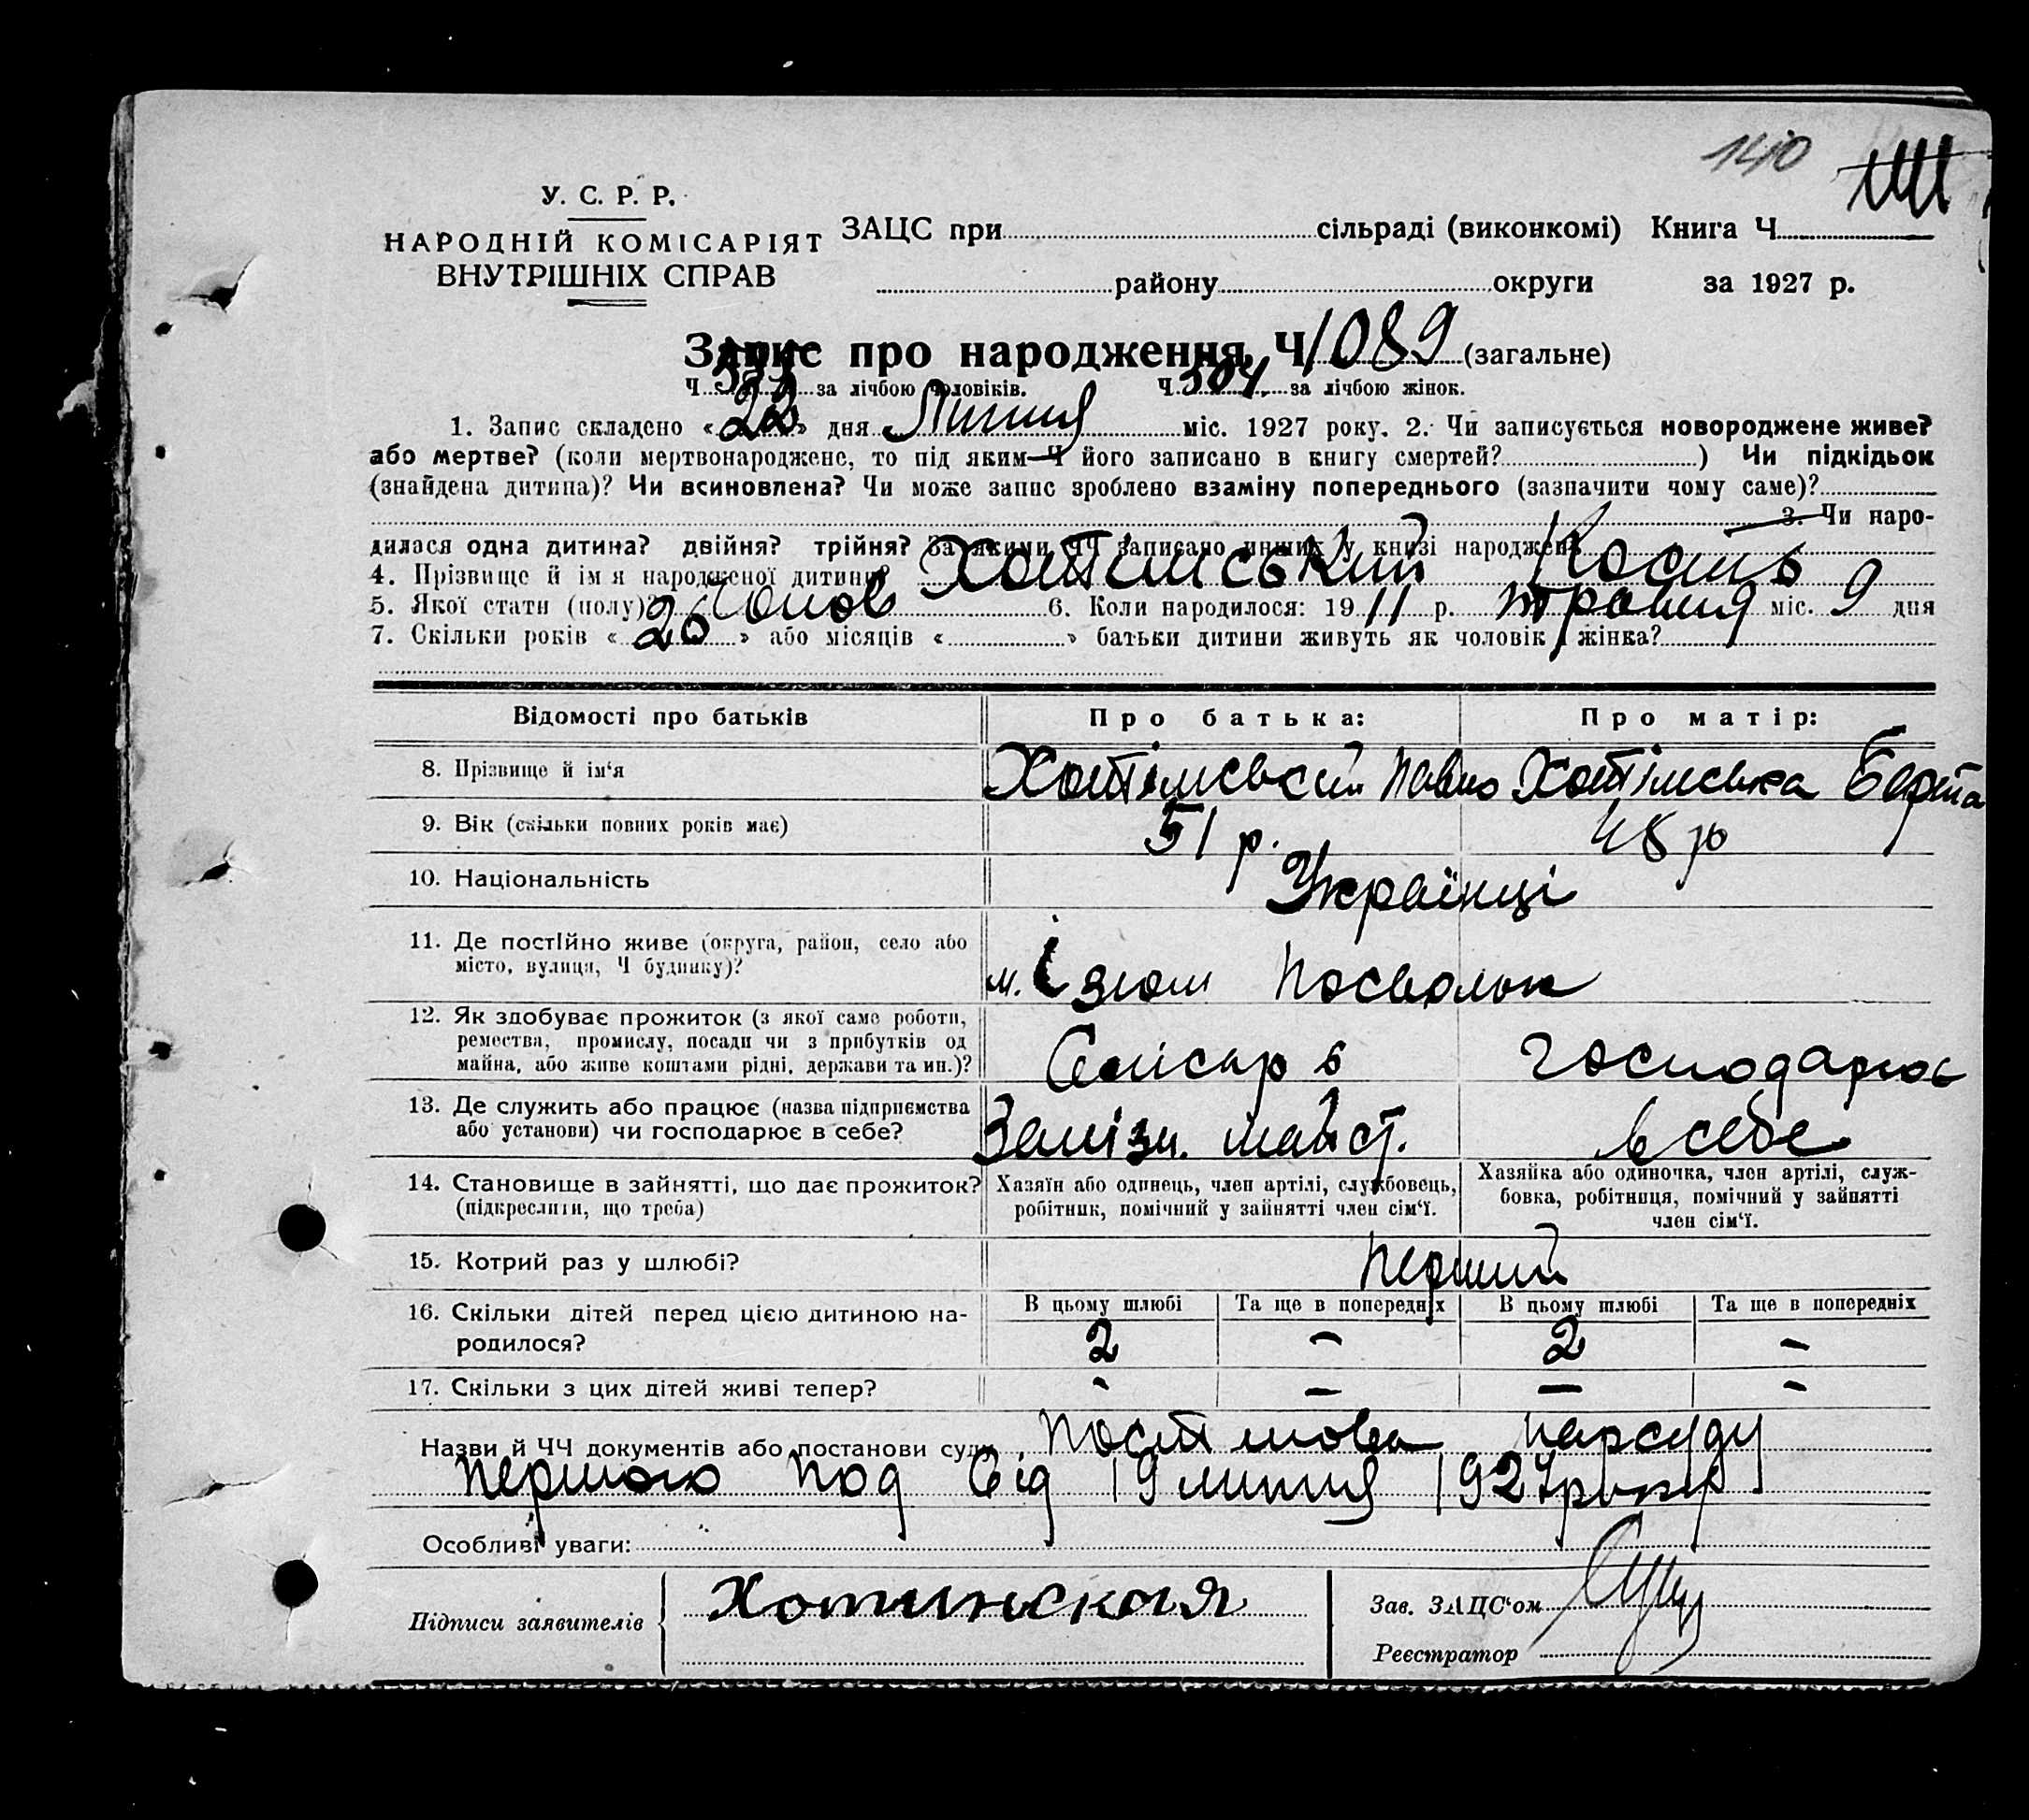 140
У. С. Р. Р.
НАРОДНІЙ КОМІСАРІЯТ
ВНУТРІШНІХ СПРАВ
ЗАЦС при сільраді (виконкомі) Книга Ч.
району округи за 1927 р.
Запис про народження, Ч 1089 (загальне)
Ч. за лічбою чоловіків. Ч. 504 за лічбою жінок.
1. Запис складено «22» дня Липня міс. 1927 року. 2. Чи записується новороджене живе?
або мертве? (коли мертвонароджене, то під яким Ч його записано в книгу смертей? ) Чи підкідьок
(знайдена дитина)? Чи всиновлена? Чи може запис зроблено взаміну попереднього (зазначити чому саме)?
3. Чи наро-
дилася одна дитина? двійня? трійня? За якими ЧЧ записано инших у книзі народжень
4. Прізвище й ім'я народженої дитини? Хотімський Кость
5. Якої стати (полу)? Чолов 6. Коли народилося: 1911 р. травня міс. 9 дня
7. Скільки років «20» або місяців « » батьки дитини живуть як чоловік, жінка?
Відомості про батьків Про батька: Про матір:
8. Прізвище й ім'я Хотімський Павло Хотімська Берта
9. Вік (скільки повних років має) 51 р. 48 р
10. Національність Українці
11. Де постійно живе (округа, район, село або
місто, вулиця, Ч будинку)?
м. Ізюм
12. Як здобуває прожиток (з якої саме роботи,
ремества, промислу, посади чи з прибутків од
майна, або живе коштами рідні, держави та ин.)?
Слюсар в господарює
13. Де служить або працює (назва підприємства
або установи) чи господарює в себе?
Залізн. майст. в себе
14. Становище в зайнятті, що дає прожиток?
(підкреслити, що треба)
Хазяїн або одинець, член артілі, службовець,
робітник, помічний у зайнятті член сім'ї.
Хазяйка або одиночка, член артілі, служ-
бовка, робітниця, помічний у зайнятті
член сім'ї.
15. Котрий раз у шлюбі? перший
16. Скільки дітей перед цією дитиною на-
родилося?
В цьому шлюбі Та ще в попередніх В цьому шлюбі Та ще в попередніх
2 – 2 –
17. Скільки з цих дітей живі тепер? - – – -
Назви й ЧЧ документів або постанови суду Постанова нарсуду
першого под від 19 липня 1927 року
Особливі уваги:
Підписи заявителів Хотимская
Зав. ЗАЦС'ом
Реєстратор